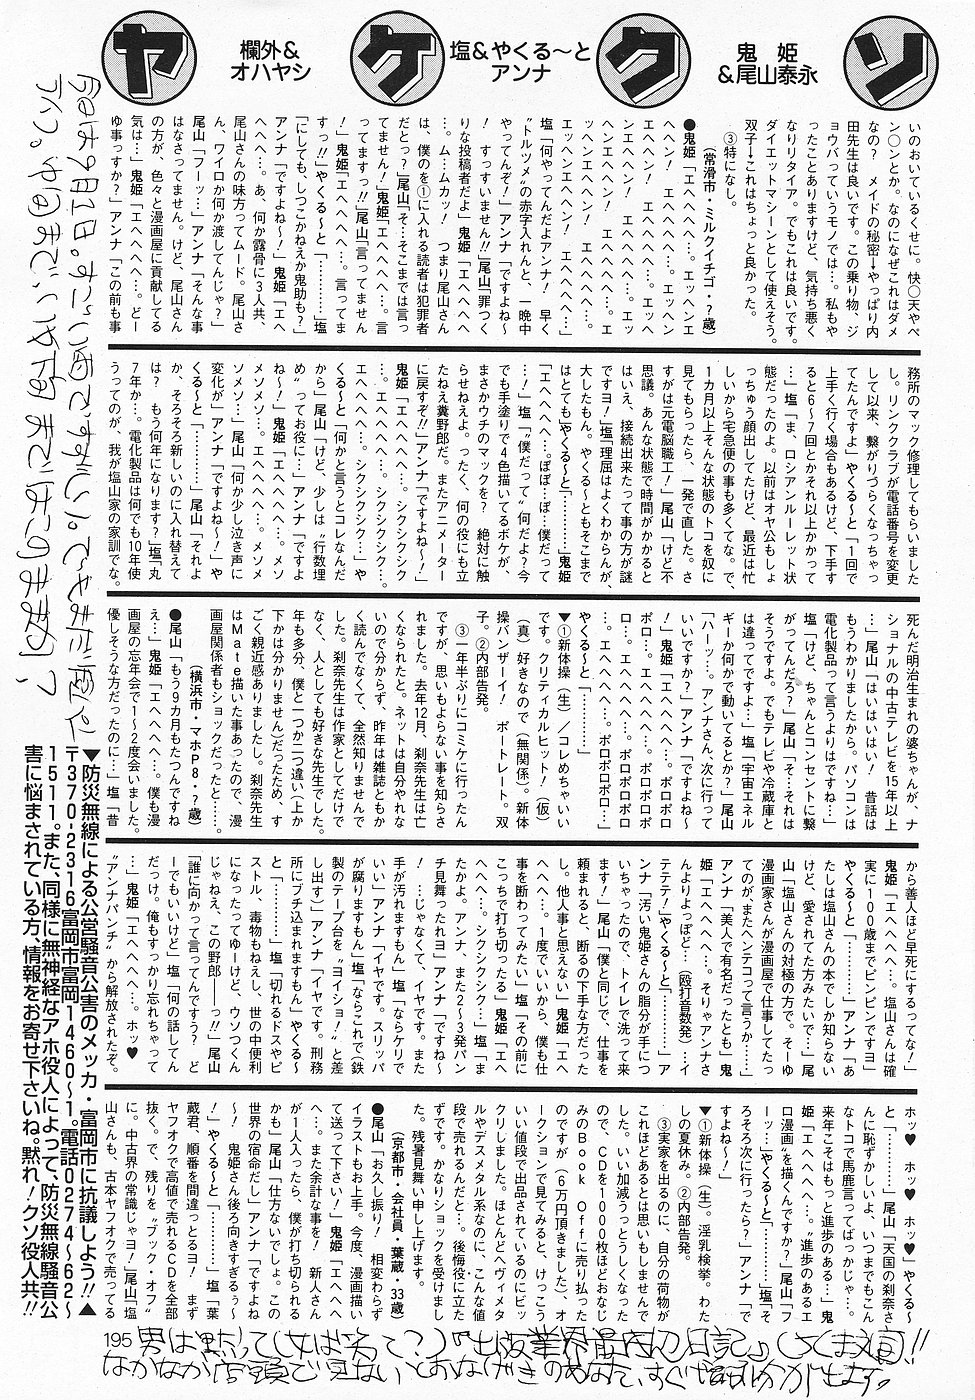 ソ
鬼姫
&尾山泰永
ク
塩&やくる〜と
アンナ
ケ
欄外&
オハヤシ
ヤ
いのおいているくせに。快〇天やペ
ン〇ンとか。なのになぜこれはダメ
なの? メイドの秘密→やっぱり内
田先生は良いです。この乗り物、ジ
ョウバっていうモノでは…。私もや
ったことありますけど、気持ち悪く
なりリタイア。でもこれは良いです。
ダイエットマシーンとして使えそう。
双子→これはちょっと良かった。
③特になし。
(常滑市・ミルクイチゴ・?歳)
●鬼姫「エヘヘヘヘ…。エッヘンエ
ヘヘン! エヘヘン! エヘヘン
エヘヘン! エヘヘヘヘ…。エッ
ヘンエヘン! エヘヘヘヘ…。エッ
エッヘンエヘン! エヘヘヘヘ…」
塩「何やってんだよアンナ! 早く
〝トルツメ〟の赤字入れんと、一晩中
やってんぞ!」アンナ「ですよね〜
! すっすいません!!」尾山「罪つく
りな投稿者だよ」鬼姫「エヘヘヘヘ
…。ム…ムカッ! つまり尾山さん
は、僕のを①に入れる読者は犯罪者
だとっ?」尾山「そ…そこまでは言っ
てません!」鬼姫「エヘヘヘ…。言
ってますっ!!」尾山「言ってません
!」鬼姫「エヘヘヘ…。言ってま
すっ!!」やくる〜と「…………」塩
「にしても、しつこかねえか鬼助も?」
アンナ「ですよね〜!」鬼姫「エヘ
ヘヘヘ…。あ、何か露骨に3人共、
尾山さんの味方ってムード。尾山さ
ん、ワイロか何か渡してんじゃ?」
尾山「フーッ…」アンナ「そんな事
はなさってません。けど、尾山さん
の方が、色々と漫画屋に貢献してる
気は…」鬼姫「エヘヘヘヘ…。どー
ゆ事っすか?」アンナ「この前も事
務所のマック修理してもらいました
し。リンククラブが電話番号を変更
して以来、繋がりづらくなっちゃっ
てたんですよ」やくる〜と「1回で
上手く行く場合もあるけど、下手す
ると6〜7回とかそれ以上かかって
…」塩「ま、ロシアンルーレット状
態だったのよ。以前はオヤ公もしょ
っちゅう顔出してたけど、最近は忙
しいから宅急便の事も多くてな。で、
1カ月以上そんな状態のトコを奴に
見てもらったら、一発で直した。さ
すがは元電脳職工!」尾山「けど不
思議。あんな状態で時間がかかると
はいえ、接続出来たって事の方が謎
ですョ!」塩「理屈はよくわからんが、
大したもんだ。糞野郎のおめえと
はとても」やくる〜と「…………」鬼姫
「エヘヘヘヘ…。ぼ…ぼ…僕だって
…!」塩「〝僕だって〟何だよ? 今
でも手塗りで4色描いてるボケが、
まさかウチのマックを? 絶対に触
らせねえよ。ったく、何の役にも立
たねえ糞野郎だ。またアニメーター
に戻すぞ!!」アンナ「ですよね〜!」
鬼姫「エヘヘヘヘ…。シクシクシク
…。エヘヘヘヘ…。シクシクシク…。
エヘヘヘヘ…。シクシクシク…」や
くる〜と「何かと言うとコレなんだ
から」尾山「けど、少しは〝行数埋
め〟ってお役に…」アンナ「ですよ
ね〜!」鬼姫「エヘヘヘヘ…。メソ
メソメソ…。エヘヘヘヘ…。メソメ
ソメソ…」尾山「何か少し泣き声に
変化が」アンナ「ですよね〜!」や
くる〜と「…………」尾山「それよ
か、そろそろ新しいのに入れ替えて
は? もう何年になります?」塩「丸
7年か…。電化製品は何でも10年使
うってのが、我が塩山家の家訓でな。
死んだ明治生まれの婆ちゃんが、ナ
ショナルの中古テレビを15年以上
…」尾山「はいはいはい! 昔話は
もうわかりましたから。パソコンは
電化製品って言うよりはですね…」
塩「けど、ちゃんとコンセントに繋
がってんだろ?」尾山「そ…それは
そうですよ。でもテレビや冷蔵庫と
は違ってですね…」塩「宇宙エネル
ギーか何かで動いてるとか?」尾山
「ハーッ…。アンナさん、次に行って
いいですか?」アンナ「ですよね〜
!」鬼姫「エヘヘヘヘ…。ポロポロ
ポロ…。エヘヘヘヘ…。ポロポロポ
ロ…。エヘヘヘヘ…。ポロポロポロ
…。エヘヘヘヘ…。ポロポロポロ…」
やくる〜と「…………」
▼①新体操(生)/コレめちゃいい
です。クリティカルヒット!(仮)
(真)好きなので(無関係)。新体
操バンザーイ! ポートレート。双
子。②内部告発。
③一年半ぶりにコミケに行ったん
ですが、思いもよらない事を知らさ
れました。去年12月、刹奈先生は亡
くなられたと。ネットは自分やれな
いので分からず、昨年は雑誌ともか
く読んでなくて、全然知りませんで
した。刹奈先生は作家としてだけで
なく、人としても好きな先生でした。
年も多分、僕と一つか二つ違い(上か
下かは分かりません)だったため、す
ごく親近感ありましたし。刹奈先生
はMate描いた事あったので、漫
画屋関係者もショックだったと…。
(横浜市・マホP8・?歳)
●尾山「もう9カ月もたつんですね
え…」鬼姫「エヘヘヘヘ…。僕も漫
画屋の忘年会で1〜2度会いました。
優しそうな方だったのに…」塩「昔
から善人ほど早死にするってな!」
鬼姫「エヘヘヘヘ…。塩山さんは確
実に100歳までピンピンですョ」
やくる〜と「…………」アンナ「あ
たしは塩山さんの本でしか知らない
けど、愛されてた方みたいで…」尾
山「塩山さんの対極の方で。そーゆ
漫画家さんが漫画屋で仕事してたっ
てのが、またヘンテコって言うか……」
アンナ「美人で有名だったとも」鬼
姫「エヘヘヘヘ…。そりゃアンナさ
んよりよっぽど…(殴打音数発)…イ
テテテ!」やくる〜と「…………」ア
ンナ「汚い鬼姫さんの脂分が手につ
いちゃったので、トイレで洗って来
ます!」尾山「僕と同じで、仕事を
頼まれると、断るの下手な方だった
し。他人事と思えない」鬼姫「エヘ
ヘヘヘ…。1度でいいから、僕も仕
事を断わってみたい」塩「その前に
こっちで打ち切ったる」鬼姫「エヘ
ヘヘヘ…。シクシクシク…」塩「ま
たかよ。アンナ、また2〜3発パン
チ見舞ったれヨ」アンナ「ですね〜
! …じゃなくて、イヤです。また
手が汚れますもん」塩「ならケリで
いい」アンナ「イヤです。スリッパ
が腐りますもん」塩「ならこれで(鉄
製のテープ台を〝ヨイショ!〟と差
し出す)」アンナ「イヤです。刑務
所にブチ込まれますもん」やくる〜
と「…………」塩「切れるドスやピ
ストル、毒物もねえし、世の中便利
になったってゆーけど、ウソつくん
じゃねえ、この野郎――っ!」尾山
「誰に向かって言ってんですか?」塩
「どーでもいいけど」塩「何の話してん
だっけ。俺もすっかり忘れちゃって
…」鬼姫「エヘヘヘヘ…。ホッ♥
〝アンナパンチ〟から解放されたぞ。
ホッ♥ ホッ♥ ホッ♥」やくる〜
と「…………」尾山「天国の刹奈さ
んに恥ずかしいよ、いつまでもこん
なトコで馬鹿言ってばっかじゃ…。
来年こそはもっと進歩のある…」鬼
姫「エヘヘヘヘ…。〝進歩のあるエ
ロ漫画〟を描くんですか?」尾山「フ
ーッ…」やくる〜と「…………」塩「そ
ろそろ次に行ったら?」アンナ「で
すよね〜!」
▼①新体操(生)。淫乳検挙。わた
しの夏休み。②内部告発。
③実家を出るのに、自分の荷物が
これほどあるとは思いもしませんで
した。いい加減うっとうしくなった
ので、CDを1000枚ほどおなじ
みのBook Offに売り払った
のですが(6万円頂きました)、オ
ークションで見てみると、けっこう
いい値段で出品されているのにビッ
クリしました。ほとんどヘヴィメタ
ルやデスメタル系なのに、こんな値
段で売れるんだと…。後悔役に立た
ずです。かなりショックを受けまし
た。残暑見舞い申し上げます。
(京都市・会社員・葉蔵・33歳)
●尾山「お久し振り! 相変わらず
イラストもお上手。今度、漫画描い
て送って下さい!」鬼姫「エヘヘヘ
ヘ…。また余計な事を! 新人さん
が1人入ったら、僕が打ち切られる
かも」尾山「仕方ないでしょ。この
世界の宿命だし」アンナ「ですよね
〜! 鬼姫さん後ろ向きすぎるぅ〜
!」やくる〜と「…………」塩「葉
蔵君、順番を間違っとるヨ! まず
ヤフオクで高値で売れるCDを全部
抜く。で、残りを〝ブック・オフ〟
に。中古界の常識じゃョ!」尾山「塩
山さんも、古本ヤフオクで売って
▼防災無線による公営騒音公害のメッカ・富岡市に抗議しよう!!▲
〒370-2316富岡市富岡1460〜1。電話0274〜62〜
1511。また、同様に無神経なアホ役人によって、防災無線騒音公
害に悩まされている方、情報をお寄せ下さいね。黙れ!クソ役人共!!
今日は9月1日。すごい雨ですずしい。でもまだ
195
男は黙って(女は笑って?)『出版業界最底辺日記』(ちくま文庫)!!
なかなか店頭で見ないとおなげきのあなた、すぐ